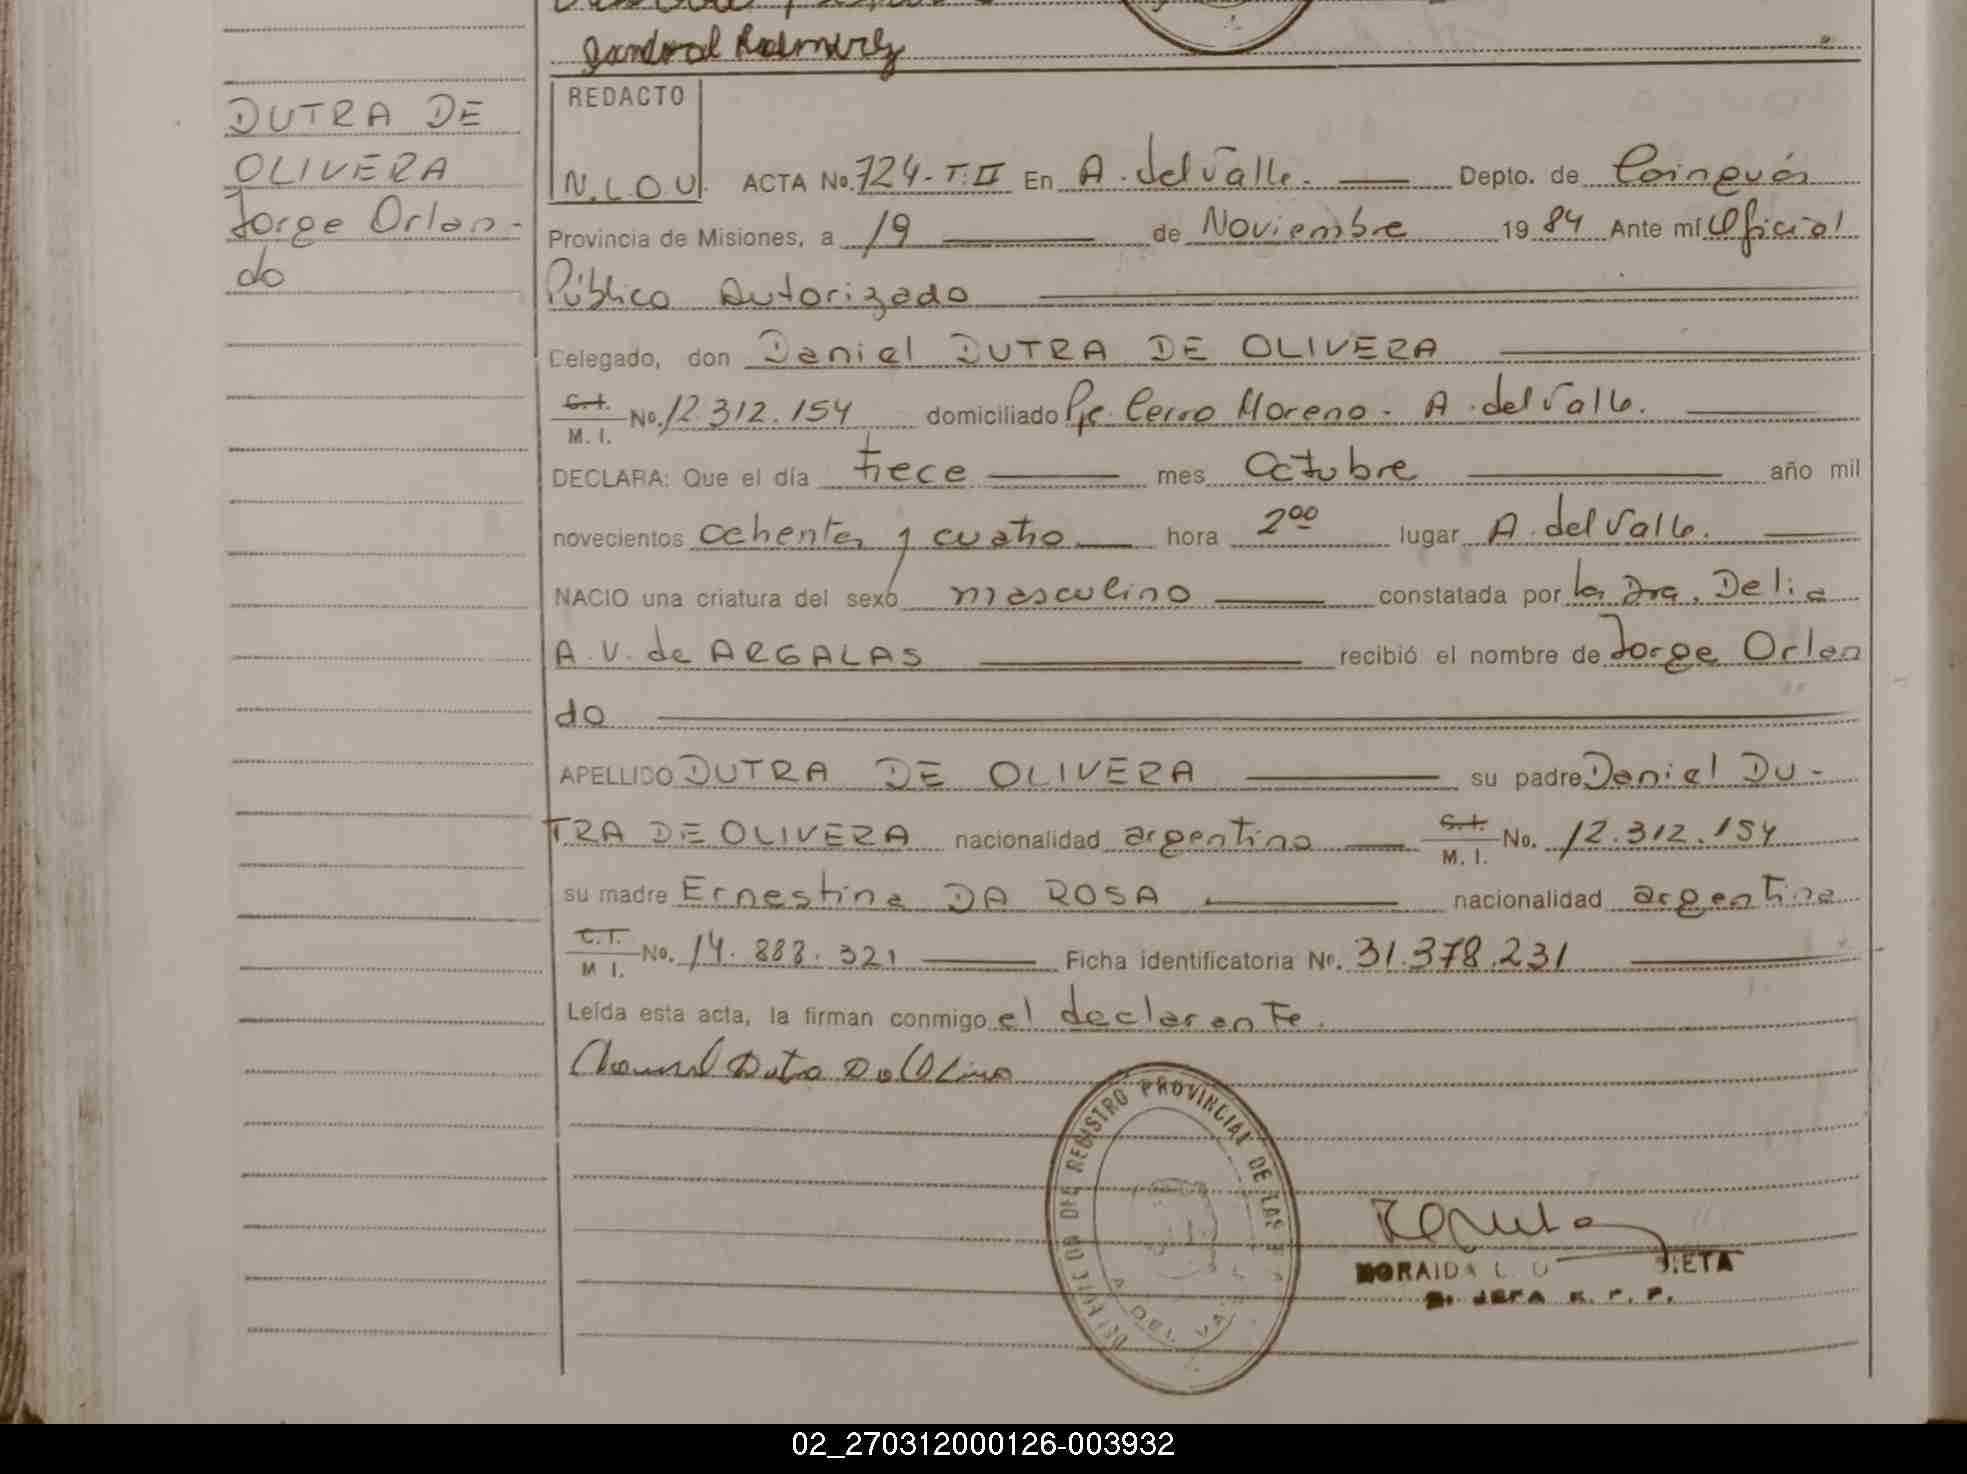 Sandoval Ramirez
DUTRA DE
OLIVERA
Jorge Orlan-
do
REDACTO
N.L.O.U. ACTA No. 724-T.II En A. del Valle. Depto. de Cainguás
Provincia de Misiones, a 19 de Noviembre 1984 Ante mí Oficial
Público Autorizado
Delegado, don Daniel DUTRA DE OLIVERA
C.I. M.I. No. 12.312.154 domiciliado Pje. Cerro Moreno - A. del Valle.
DECLARA: Que el día trece mes Octubre año mil
novecientos ochenta y cuatro hora 2⁰⁰ lugar A. del Valle.
NACIO una criatura del sexo masculino constatada por la Dra. Delia
A.V. de ARGALAS recibió el nombre de Jorge Orlan
do
APELLIDO DUTRA DE OLIVERA su padre Daniel DU-
TRA DE OLIVERA nacionalidad argentino C.I. M.I. No. 12.312.154
su madre Ernestina DA ROSA nacionalidad argentina
C.I. M I. No. 14.888.321 Ficha identificatoria No. 31.378.231
Leída esta acta, la firman conmigo el declarante.
DEL REGISTRO PROVINCIAL DE LAS
A. DEL VA
MORAIDA L.
JEFA R. P. P.
02_270312000126-003932